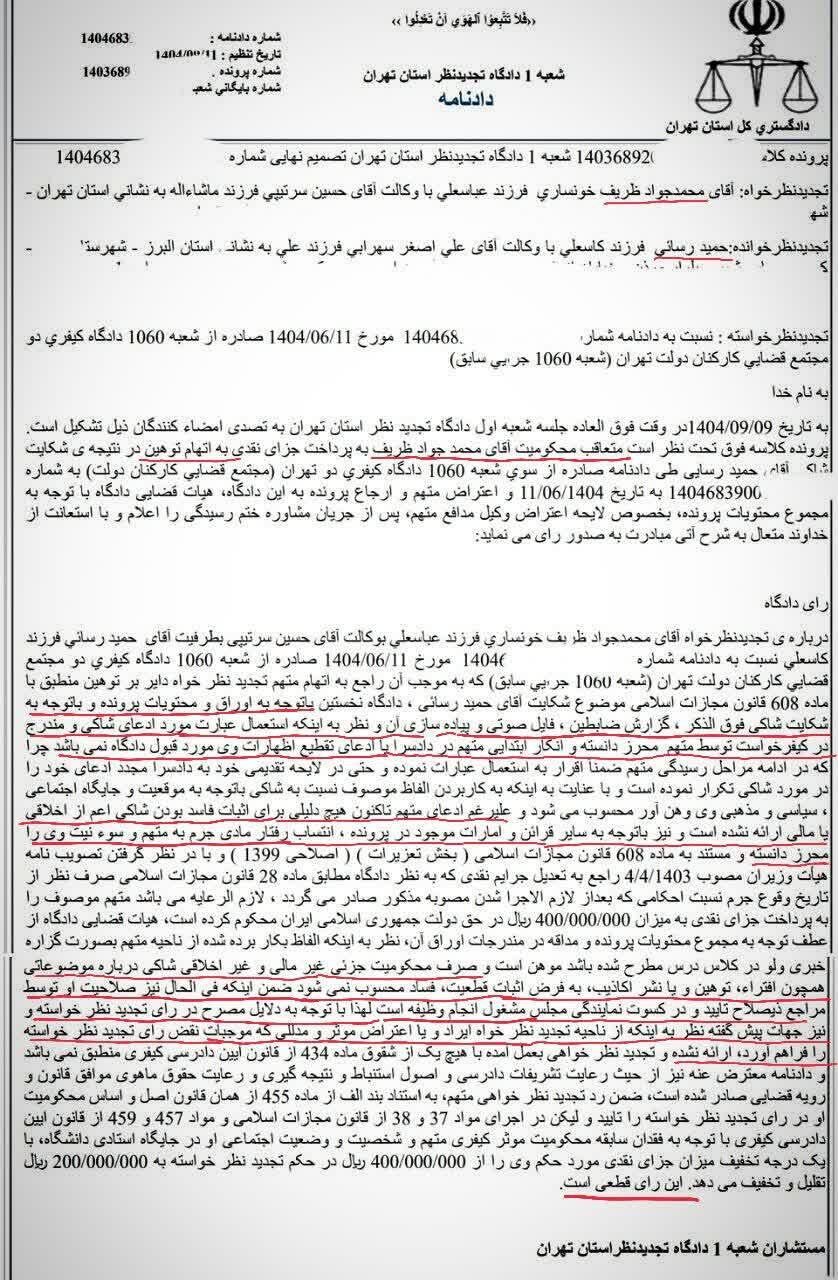 «فَلاٰ تَتَّبِعُوا اَلْهَوىٰ أَنْ تَعْدِلُوا»
شماره دادنامه : 1404683
تاریخ تنظیم :
شماره پرونده . 1403689
شماره بایگاني شعب
شعبه 1 دادگاه تجدیدنظر استان تهران
دادنامه
دادگستري کل استان تهران
پرونده کلاس 14036892 شعبه 1 دادگاه تجدیدنظر استان تهران تصمیم نهایی شماره 1404683
تجدیدنظرخواه: آقای محمدجواد ظریف خونساري فرزند عباسعلي با وکالت آقای حسین سرتیپي فرزند ماشاءاله به نشاني استان تهران -
تجدیدنظرخوانده:حمید رسائي فرزند کاسعلي با وکالت آقای علي اصغر سهرابي فرزند علي به نشانی استان البرز - شهرستا -
تجدیدنظرخواسته : نسبت به دادنامه شمار 140468. مورخ 1404/06/11 صادره از شعبه 1060 دادگاه کیفري دو
مجتمع قضایي کارکنان دولت تهران (شعبه 1060 جزایي سابق)
به نام خدا
به تاریخ 1404/09/09در وقت فوق العاده جلسه شعبه اول دادگاه تجدید نظر استان تهران به تصدی امضاء کنندگان ذیل تشکیل است.
پرونده کلاسه فوق تحت نظر است متعاقب محکومیت آقای محمد جواد ظریف به پرداخت جزای نقدی به اتهام توهین در نتیجه ی شکایت
شاکی آقای حمید رسایی طی دادنامه صادره از سوي شعبه 1060 دادگاه کیفري دو تهران (مجتمع قضایي کارکنان دولت) به شماره
1404683900 به تاریخ 11/06/1404 و اعتراض متهم و ارجاع پرونده به این دادگاه، هیات قضایی دادگاه با توجه به
مجموع محتویات پرونده، بخصوص لایحه اعتراض وکیل مدافع متهم، پس از جریان مشاوره ختم رسیدگی را اعلام و با استعانت از
خداوند متعال به شرح آتی مبادرت به صدور رای می نماید:
رای دادگاه
درباره ی تجدیدنظرخواه آقای محمدجواد ظریف خونساري فرزند عباسعلي بوکالت آقای حسین سرتیپی بطرفیت آقای حمید رسائي فرزند
کاسعلي نسبت به دادنامه شماره 14046 مورخ 1404/06/11 صادره از شعبه 1060 دادگاه کیفري دو مجتمع
قضایي کارکنان دولت تهران (شعبه 1060 جزایي سابق) که به موجب آن راجع به اتهام متهم تجدید نظر خواه دایر بر توهین منطبق با
ماده 608 قانون مجازات اسلامی موضوع شکایت آقای حمید رسائی ، دادگاه نخستین باتوجه به اوراق و محتویات پرونده و باتوجه به
شکایت شاکی فوق الذکر ، گزارش ضابطین ، فایل صوتی و پیاده سازی آن و نظر به اینکه استعمال عبارت مورد ادعای شاکی و مندرج
در کیفرخواست توسط متهم محرز دانسته و انکار ابتدایی متهم در دادسرا با ادعای تقطیع اظهارات وی مورد قبول دادگاه نمی باشد چرا
که در ادامه مراحل رسیدگی متهم ضمناً اقرار به استعمال عبارات نموده و حتی در لایحه تقدیمی خود به دادسرا مجدد ادعای خود را
در مورد شاکی تکرار نموده است و با عنایت به اینکه به کاربردن الفاظ موصوف نسبت به شاکی باتوجه به موقعیت و جایگاه اجتماعی
، سیاسی و مذهبی وی وهن آور محسوب می شود و علیرغم ادعای متهم تاکنون هیچ دلیلی برای اثبات فاسد بودن شاکی اعم از اخلاقی
یا مالی ارائه نشده است و نیز باتوجه به سایر قرائن و امارات موجود در پرونده ، انتساب رفتار مادی جرم به متهم و سوء نیت وی را
محرز دانسته و مستند به ماده 608 قانون مجازات اسلامی ( بخش تعزیرات ) ( اصلاحی 1399 ) و با در نظر گرفتن تصویب نامه
هیأت وزیران مصوب 4/4/1403 راجع به تعدیل جرایم نقدی که به نظر دادگاه مطابق ماده 28 قانون مجازات اسلامی صرف نظر از
تاریخ وقوع جرم نسبت احکامی که بعداز لازم الاجرا شدن مصوبه مذکور صادر می گردد ، لازم الرعایه می باشد متهم موصوف را
به پرداخت جزای نقدی به میزان 400/000/000 ریال در حق دولت جمهوری اسلامی ایران محکوم کرده است، هیات قضایی دادگاه از
عطف توجه به مجموع محتویات پرونده و مداقه در مندرجات اوراق آن، نظر به اینکه الفاظ بکار برده شده از ناحیه متهم بصورت گزاره
خبری ولو در کلاس درس مطرح شده باشد موهن است و صرف محکومیت جزئی غیر مالی و غیر اخلاقی شاکی درباره موضوعاتی
همچون افتراء، توهین و یا نشر اکاذیب، به فرض اثبات قطعیت، فساد محسوب نمی شود ضمن اینکه فی الحال نیز صلاحیت او توسط
مراجع ذیصلاح تایید و در کسوت نمایندگی مجلس مشغول انجام وظیفه است لهذا با توجه به دلایل مصرح در رای تجدید نظر خواسته و
نیز جهات پیش گفته نظر به اینکه از ناحیه تجدید نظر خواه ایراد و یا اعتراض موثر و مدللی که موجبات نقض رای تجدید نظر خواسته
را فراهم آورد، ارائه نشده و تجدید نظر خواهی بعمل آمده با هیچ یک از شقوق ماده 434 از قانون آیین دادرسی کیفری منطبق نمی باشد
و دادنامه معترض عنه نیز از حیث رعایت تشریفات دادرسی و اصول استنباط و نتیجه گیری و رعایت حقوق ماهوی موافق قانون و
رویه قضایی صادر شده است، ضمن رد تجدید نظر خواهی متهم، به استناد بند الف از ماده 455 از همان قانون اصل و اساس محکومیت
او در رای تجدید نظر خواسته را تایید و لیکن در اجرای مواد 37 و 38 از قانون مجازات اسلامی و مواد 457 و 459 از قانون آیین
دادرسی کیفری با توجه به فقدان سابقه محکومیت موثر کیفری متهم و شخصیت و وضعیت اجتماعی او در جایگاه استادی دانشگاه، با
یک درجه تخفیف میزان جزای نقدی مورد حکم وی را از 400/000/000 ریال در حکم تجدید نظر خواسته به 200/000/000 ریال
تقلیل و تخفیف می دهد. این رای قطعی است.
مستشاران شعبه 1 دادگاه تجدیدنظراستان تهران